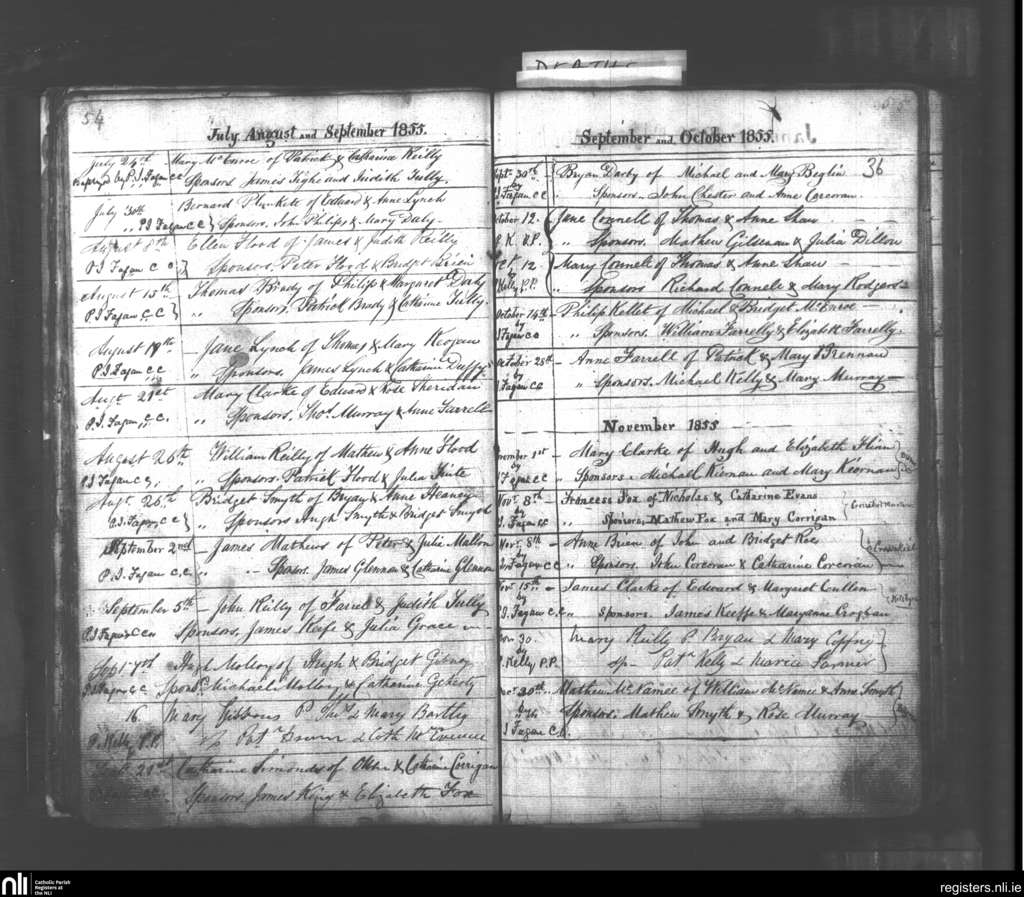 DEATHS
54
July August and September 1855.
July 24th Mary McEnroe of Patrick & Catharine Reilly
Baptized by P.J. Fagan CC Sponsors James Tighe and Judith Tully.
July 30th Bernard Plunkete of Edward & Anne Lynch
" P.J Fagan C C } Sponsors, John Philips & Mary Daly.
August 8th Ellen Flood of James & Judith Reilly
P.J Fagan C C } Sponsors. Peter Flood & Bridget Brien
August 15th Thomas Brady of Philip & Margaret Daly
P.J Fagan C C } " Sponsors. Patrick Brady & Catharine Tully.
August 19th – Jane Lynch of Thomas & Mary Keogan
P.J. Fagan C.C. " Sponsors. James Lynch & Catharine Duffy
Augt 21st Mary Clarke of Edward & Rose Sheridan
P.J. Fagan, C.C. " Sponsors, Thos. Murray & Anne Farrell
August 26th William Reilly of Mathew & Anne Flood
P.J Fagan C C, " Sponsors. Patrick Flood & Julia
Augt 26th Bridget Smyth of Bryan & Anne Heaney
P.J. Fagan C C } " Sponsors Hugh Smyth & Bridget Smyth
September 2nd – James Mathews of Peter & Julia Mallon
P.J. Fagan C.C. " – Sponsors. James Glennon & Catharine Glennon
September 5th – John Reilly of Farrell & Judith Tully
P.J Fagan C C Sponsors, James Keefe & Julia Grace
Sept 7th Hugh Molloy of Hugh & Bridget
P.J Fagan C C Sponsrs Michael Molloy & Catharine
16. Mary Gibbons P. Thos & Mary
P. Kelly P.P. s/p Patk Brown & Cath
21st Catharine Simonds of & Catharine Corrigan
Sponsors. James King & Elizabeth Fox
September and October 1855.
36
Sept 30th – Bryan Darby of Michael and Mary Beglin
by
P.J Fagan C C Sponsors – John Chester and Anne Corcoran.
October 12. Jane Connell of Thomas & Anne Shaw –
P. K. P.P. " Sponsors. Mathew Gilsenan & Julia Dillon
Oct 12 Mary Connell of Thomas & Anne Shaw –
by
P Kelly P.P. " Sponsors Richard Connell & Mary Rodgers
October 14th Philip Kellet of Michael & Bridget McEnroe –
by
J Fagan C C " Sponsors. William Farrelly & Elizabeth Farrelly.
October 28th – Anne Farrell of Patrick & Mary Brennan
by
J Fagan C C " Sponsors. Michael Kelly & Mary Murray –
November 1855
November 1st – Mary Clarke of Hugh and Elizabeth
by
J Fagan C C " Sponsors. Michael Kiernan and Mary Keernan
Novr 8th – Francess Fox of Nicholas & Catharine Evans
by
J. Fagan C C " Sponsors, Mathew Fox and Mary Corrigan
Novr 8th – Anne Brien of John and Bridget
by
J Fagan C C " Sponsors. John Corcoran & Catharine Corcoran
Novr 15th – James Clarke of Edward & Margaret Conllon
by
P.J. Fagan C. C " Sponsors. James Keeffe & Maryanne Croghan
Nov 30. Mary Reilly P. Bryan & Mary
by
P. Kelly P.P. sp – Patk Kelly & Maria Farmer
Novr 30th Mathew McNamee of William McNamee & Anne Smyth
by Sponsors. Mathew Smyth & Rose Murray
J Fagan C C.
nli
Catholic Parish
Registers at
the NLI
registers.nli.ie